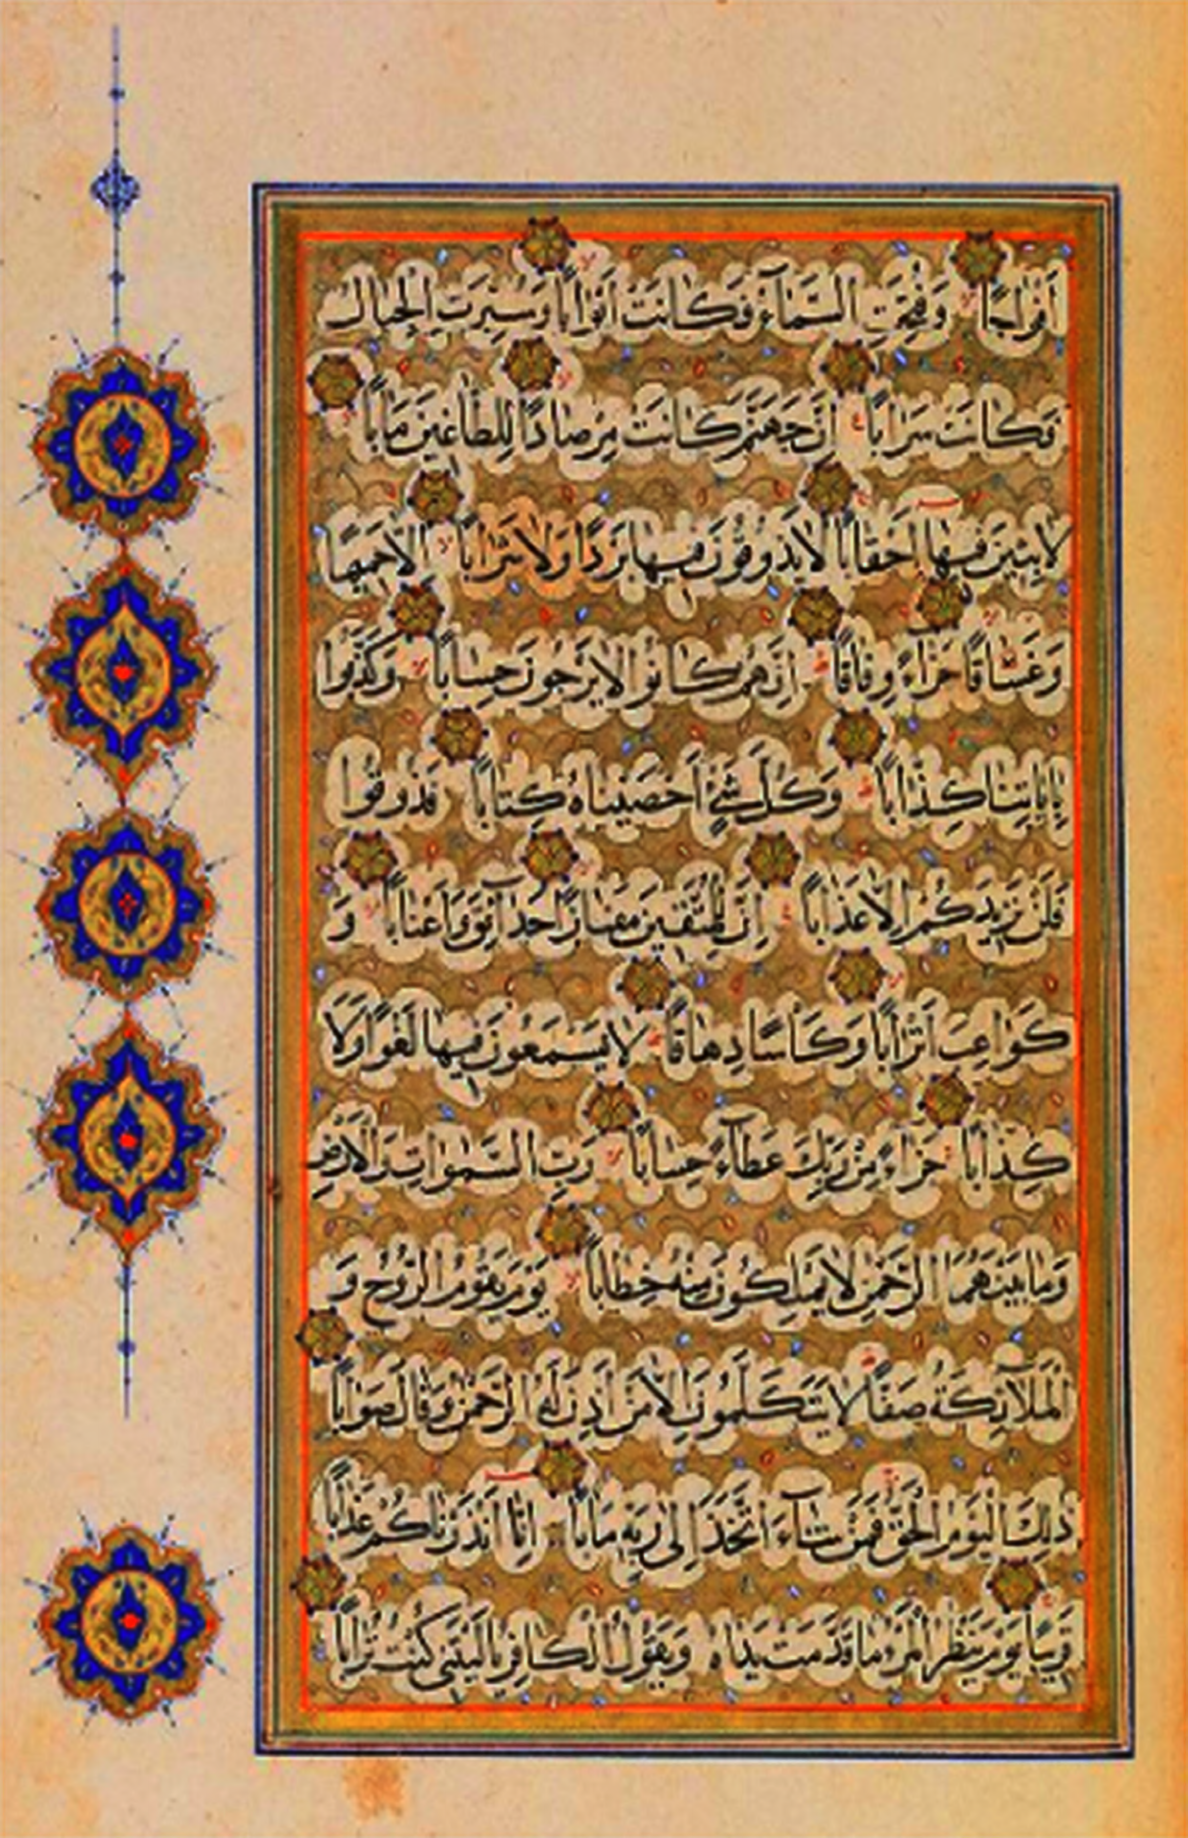 أَفْوَاجًا وَفُتِحَتِ السَّمَآءُ فَكَانَتْ أَبْوَابًا وَسُيِّرَتِ الْجِبَالُ
فَكَانَتْ سَرَابًا إِنَّ جَهَنَّمَ كَانَتْ مِرْصَادًا لِلطَّاغِينَ مَابًا
لَابِثِينَ فِيهَا أَحْقَابًا لَا يَذُوقُونَ فِيهَا بَرْدًا وَلَا شَرَابًا إِلَّا حَمِيمًا
وَغَسَّاقًا جَزَاءً وِفَاقًا إِنَّهُمْ كَانُوا لَا يَرْجُونَ حِسَابًا وَكَذَّبُوا
بِايَاتِنَا كِذَّابًا وَكُلَّ شَيْءٍ أَحْصَيْنَاهُ كِتَابًا فَذُوقُوا
فَلَنْ نَزِيدَكُمْ إِلَّا عَذَابًا إِنَّ لِلْمُتَّقِينَ مَفَازًا حَدَآئِقَ وَأَعْنَابًا وَ
كَوَاعِبَ أَتْرَابًا وَكَأْسًا دِهَاقًا لَا يَسْمَعُونَ فِيهَا لَغْوًا وَلَا
كِذَّابًا جَزَاءً مِنْ رَبِّكَ عَطَآءً حِسَابًا رَبِّ السَّمٰوَاتِ وَالْأَرْضِ
وَمَا بَيْنَهُمَا الرَّحْمٰنِ لَا يَمْلِكُونَ مِنْهُ خِطَابًا يَوْمَ يَقُومُ الرُّوحُ وَ
الْمَلَآئِكَةُ صَفًّا لَا يَتَكَلَّمُونَ إِلَّا مَنْ أَذِنَ لَهُ الرَّحْمٰنُ وَقَالَ صَوَابًا
ذٰلِكَ الْيَوْمُ الْحَقُّ فَمَنْ شَآءَ اتَّخَذَ إِلَى رَبِّهِ مَابًا إِنَّا أَنْذَرْنَاكُمْ عَذَابًا
قَرِيبًا يَوْمَ يَنْظُرُ الْمَرْءُ مَا قَدَّمَتْ يَدَاهُ وَيَقُولُ الْكَافِرُ يَا لَيْتَنِي كُنْتُ تُرَابًا